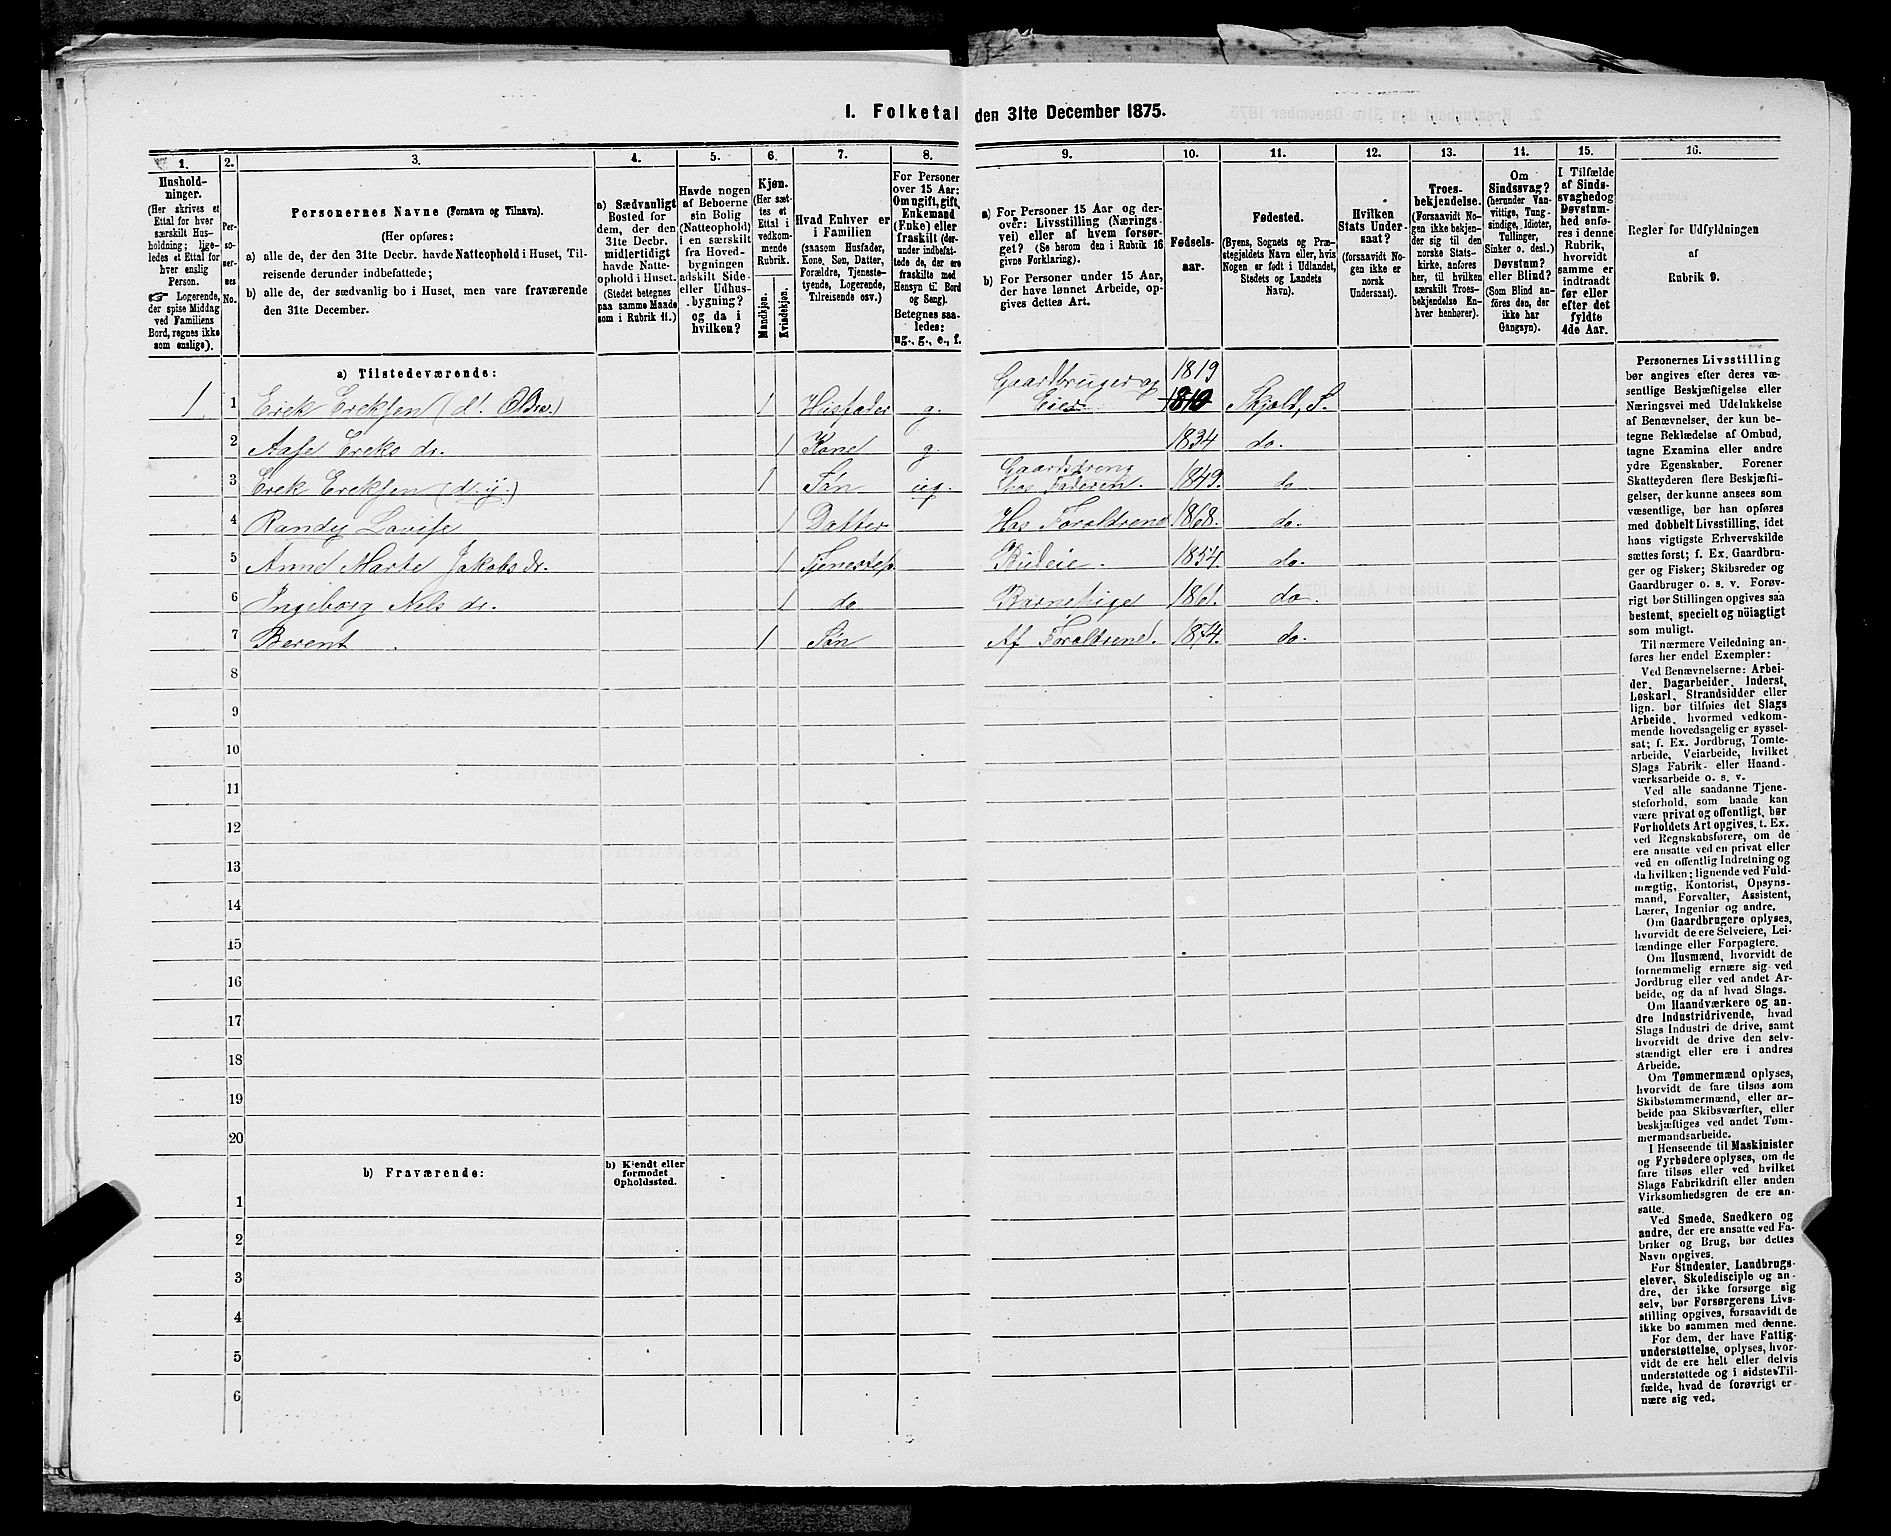 I. Folketal den 31te December 1875.
1. 2. 3. 4. 5. 6. 7. 8. 9. 10. 11. 12. 13. 14. 15. 16.
Hushold-
ninger.
(Her skrives et
Ettal for hver
særskilt Hus-
holdning; lige-
ledes et Ettal for
hver enslig
Person.
☞ Logerende,
der spise Middag
ved Familiens
Bord, regnes ikke
som enslige).
Per-
so-
ner-
nes
No.
Personernes Navne (Fornavn og Tilnavn).
(Her opføres:
a) alle de, der den 31te Decbr. havde Natteophold i Huset, Til-
reisende derunder indbefattede;
b) alle de, der sædvanlig bo i Huset, men vare fraværende
den 31te December.
a) Sædvanligt
Bosted for
dem, der den
31te Decbr.
midlertidigt
havde Natte-
ophold i Huset
(Stedet betegnes
paa samme Maade
som i Rubrik 11.)
Havde nogen
af Beboerne
sin Bolig
(Natteophold)
i en særskilt
fra Hoved-
bygningen
adskilt Side-
eller Udhus-
bygning?
og da i
hvilken?
Kjøn.
(Her sæt-
tes et
Ettal i
vedkom-
mende
Rubrik.
Mandkjøn.
Kvindekjøn.
Hvad Enhver er
i Familien
(saasom Husfader,
Kone, Søn, Datter,
Forældre, Tjeneste-
tyende, Logerende,
Tilreisende osv.)
For Personer
over 15 Aar:
Om ugift, gift,
Enkemand
(Enke) eller
fraskilt (der-
under indbefat-
tede de, der ere
fraskilte med
Hensyn til Bord
og Seng).
Betegnes saa-
ledes:
ug., g., e., f.
a) For Personer 15 Aar og der-
over: Livsstilling (Nærings-
vei) eller af hvem forsør-
get? (Se herom den i Rubrik 16
givne Forklaring).
b) For Personer under 15 Aar,
der have lønnet Arbeide, op-
gives dettes Art.
Fødsels-
aar.
Fødested.
(Byens, Sognets og Præ-
stegjeldets Navn eller, hvis
Nogen er født i Udlandet,
Stedets og Landets
Navn).
Hvilken
Stats Under-
saat?
(forsaavidt No-
gen ikke er
norsk
Undersaat).
Troes-
bekjendelse.
(Forsaavidt No-
gen ikke bekjen-
der sig til den
norske Stats-
kirke, anføres
her, til hvilken
særskilt Troes-
bekjendelse En-
hver henhører).
Om
Sindssvag?
(herunder Van-
vittige, Tung-
sindige, Idioter,
Tullinger,
Sinker o. desl.)
Døvstum?
eller Blind?
(Som Blind an-
føres den, der
ikke har
Gangsyn).
I Tilfælde
af Sinds-
svaghed og
Døvstum-
hed anfø-
res i denne
Rubrik,
hvorvidt
samme er
indtraadt
før eller
efter det
fyldte
4de Aar.
Regler for Udfyldningen
af
Rubrik 9.
a) Tilstedeværende:
1 1 Erek Ereksen (d. 1 Husfader g. Gaardbruger og Eier 1819 1819 Skjold, S.
2 Aase Ereks dr. 1 Kone g. 1834 do.
3 Erek Ereksen (d. y.) 1 Søn ug. Gaardsdreng hos Faderen. 1849. do
4 Randy Lovise 1 Datter Hos Foraldrene 1868. do.
5 Anne Marte Jakobs dr. 1 Tjenestep. Budeie. 1854. do.
6 Ingeborg Nels dr. 1 do Barnepige 1861. do.
7 Berent 1 Søn Af Foraldrene. 1874. do.
8
9
10
11
12
13
14
15
16
17
18
19
20
b) Fraværende:
b) Kjendt eller
formodet
Opholdssted.
1
2
3
4
5
6
Personernes Livsstilling
bør angives efter deres væ-
sentlige Beskjæftigelse eller
Næringsvei med Udelukkelse
af Benævnelser, der kun be-
tegne Beklædelse af Ombud,
tagne Examina eller andre
ydre Egenskaber. Forener
Skatteyderen flere Beskjæfti-
gelser, der kunne ansees som
væsentlige, bør han opføres
med dobbelt Livsstilling, idet
hans vigtigste Erhvervskilde
sættes først; f. Ex. Gaardbru-
ger og Fisker; Skibsreder og
Gaardbruger o. s. v. Forøv-
rigt bør Stillingen opgives saa
bestemt, specielt og nøiagtigt
som muligt.
Til nærmere Veiledning an-
føres her endel Exempler:
Ved Benævnelserne: Arbei-
der, Dagarbeider, Inderst,
Løskarl, Strandsidder eller
lign. bør tilføies det Slags
Arbeide, hvormed vedkom-
mende hovedsagelig er syssel-
sat; f. Ex. Jordbrug, Tomte-
arbeide, Veiarbeide, hvilket
Slags Fabrik- eller Haand-
værksarbeide o. s. v.
Ved alle saadanne Tjene-
steforhold, som baade kan
være privat og offentligt, bør
Forholdets Art opgives, t. Ex.
ved Regnskabsførere, om de
ere ansatte ved en privat eller
ved en offentlig Indretning og
da hvilken; lignende ved Fuld-
mægtig, Kontorist, Opsyns-
mand, Forvalter, Assistent,
Lærer, Ingeniør og andre.
Om Gaardbrugere oplyses,
hvorvidt de ere Selveiere, Lei-
lændinge eller Forpagtere.
Om Husmænd, hvorvidt de
fornemmelig ernære sig ved
Jordbrug eller ved andet Ar-
beide, og da af hvad Slags.
Om Haandværkere og an-
dre Industridrivende, hvad
Slags Industri de drive, samt
hvorvidt de drive den selv-
stændigt eller ere i andres
Arbeide.
Om Tømmermænd oplyses,
hvorvidt de fare tilsøs som
Skibstømmermænd, eller ar-
beide paa Skibsværfter, eller
beskjæftiges ved andet Tøm-
mermandsarbeide.
I Henseende til Maskinister
og Fyrbødere oplyses, om de
fare tilsøs eller ved hvilket
Slags Fabrikdrift eller anden
Virksomhedsgren de ere an-
satte.
Ved Smede, Snedkere og
andre, der ere ansatte ved Fa-
briker og Brug, bør dettes
Navn opgives.
For Studenter, Landbrugs-
elever, Skoledisciple og an-
dre, der ikke forsørge sig
selv, bør Forsørgerens Livs-
stilling opgives, forsaavidt de
ikke bo sammen med denne.
For dem, der have Fattig-
understøttelse, oplyses, hvor-
vidt de ere helt eller delvis
understøttede og i sidste Til-
fælde, hvad de forøvrigt er-
nære sig ved.